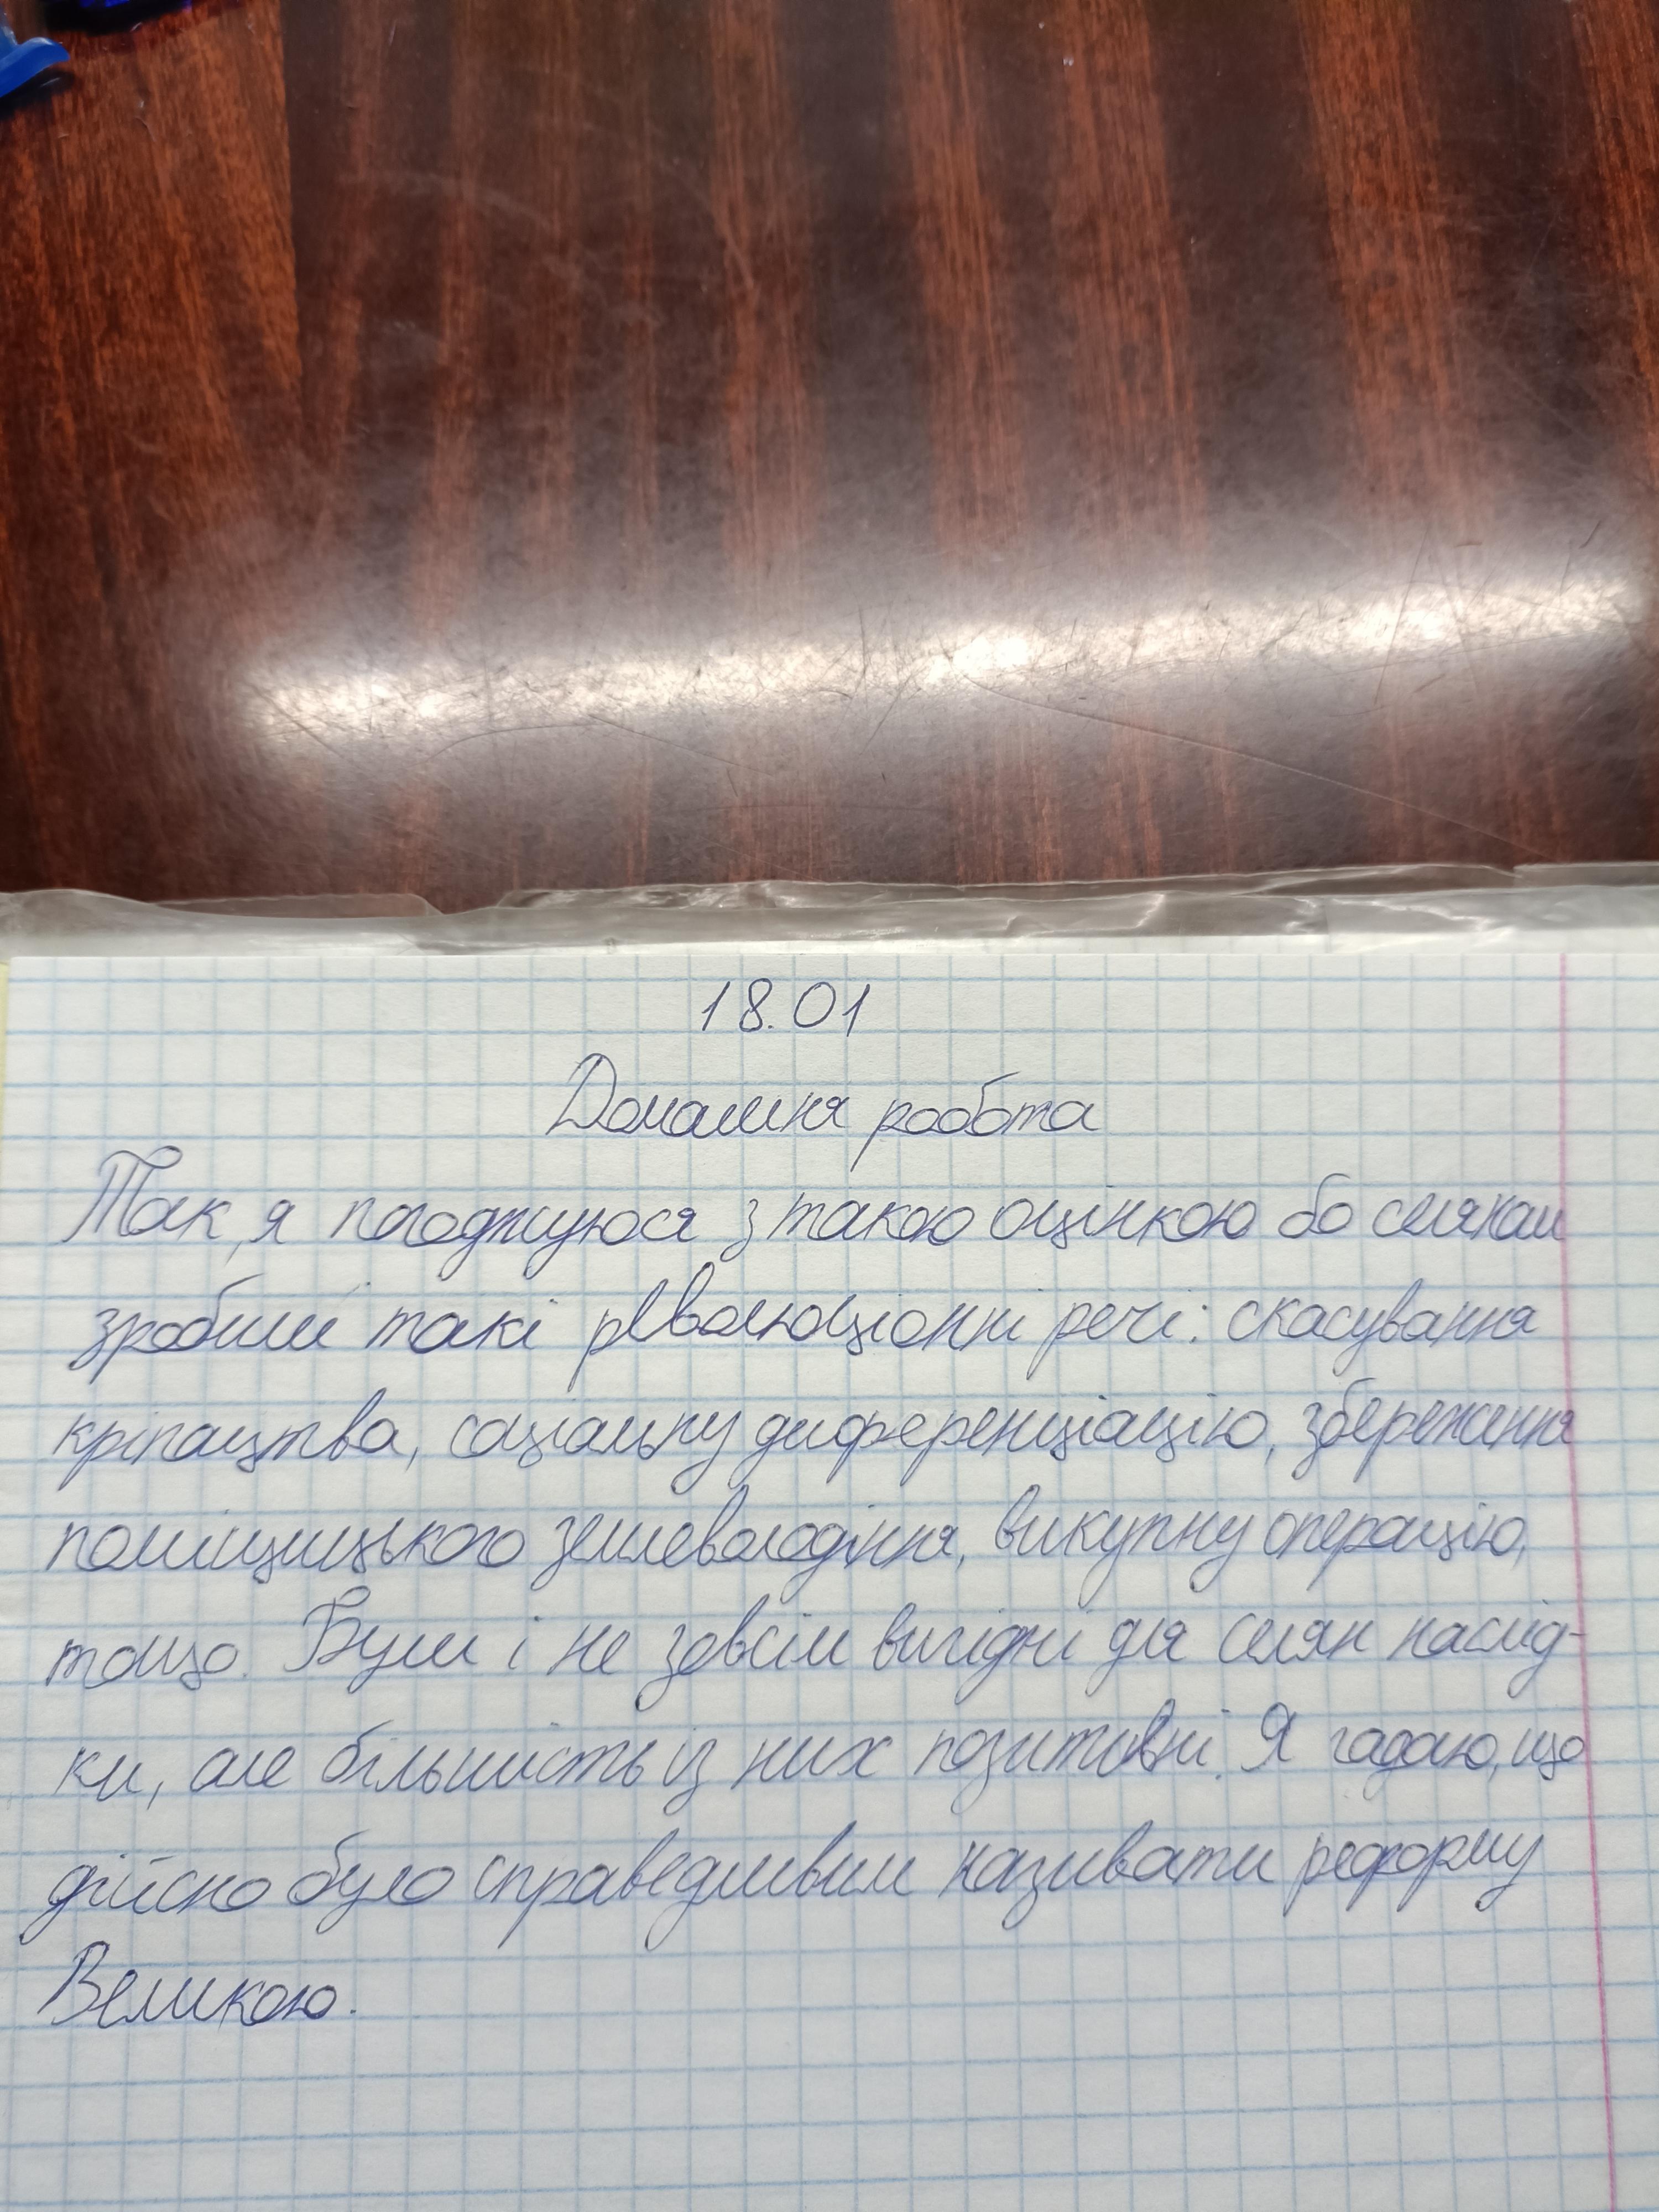 18.01
Домашня робота
Так, я погоджуюся з такою оцінкою бо селянам
зробили такі революціонні речі: скасування
кріпацтва, соціальну диференціацію, збереження
поміщицького землеволодіння, викупну операцію,
тощо. Були і не зовсім вигідні для селян наслід-
ки, але більшість із них позитивні. Я гадаю, що
дійсно було справедливим називати реформу
Великою.